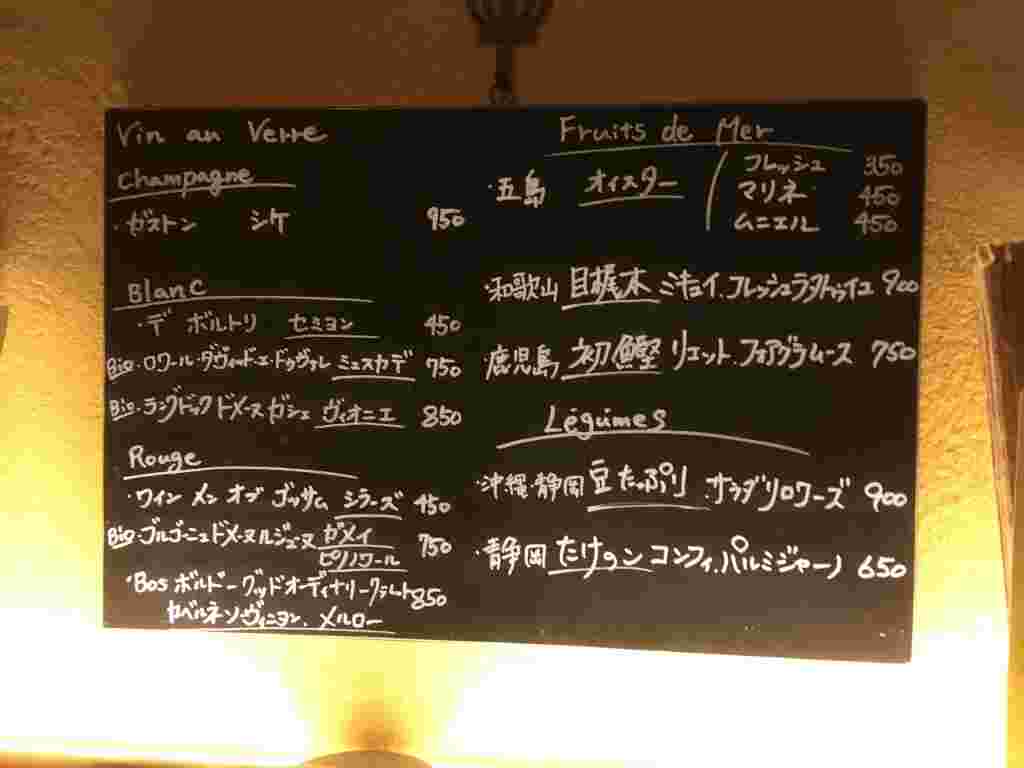 Vin au Verre
Champagne
・ガストン シケ 950
Blanc
・デ ボルトリ セミヨン 450
Bio・ロワール・ダヴィッド・エ・ドゥヴァレ ミュスカデ 750
Bio・ラングドック ドメーヌ ガシェ ヴィオニエ 850
Rouge
・ワイン メン オブ ゴッサム シラーズ 450
Bio・ブルゴーニュ ドメーヌ ルジューヌ ガメイ 750
ピノノワール
・Bos ボルドー グッドオーディナリークラレット 850
カベルネ・ソーヴィニヨン、メルロー
Fruits de Mer
・五島 オイスター フレッシュ 350
マリネ 450
ムニエル 450
・和歌山 目梶木 ミキュイ、フレッシュラタトゥイユ 900
・鹿児島 初鰹 リエット、フォアグラムース 750
Légumes
・沖縄・静岡 豆たっぷり サラダリヨワーズ 900
・静岡 たけのこ コンフィ、パルミジャーノ 650